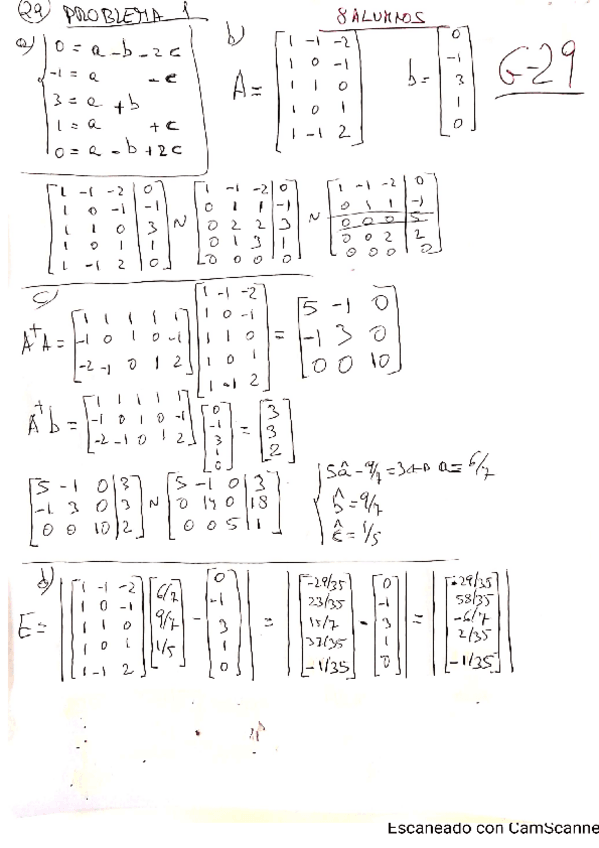 29 PROBLEMA 1 8 ALUMNOS
a) 0 = a - b - 2c
-1 = a - c
3 = a + b
1 = a + c
0 = a - b + 2c
b) A = [1 -1 -2; 1 0 -1; 1 1 0; 1 0 1; 1 -1 2] b = [0; -1; 3; 1; 0] G-29
[1 -1 -2 | 0; 1 0 -1 | -1; 1 1 0 | 3; 1 0 1 | 1; 1 -1 2 | 0] ~ [1 -1 -2 | 0; 0 1 1 | -1; 0 2 2 | 3; 0 1 3 | 1; 0 0 0 | 0] ~ [1 -1 -2 | 0; 0 1 1 | -1; 0 0 0 | 5; 0 0 2 | 2; 0 0 0 | 0]
c)
AᵗA = [1 1 1 1 1; -1 0 1 0 -1; -2 -1 0 1 2] [1 -1 -2; 1 0 -1; 1 1 0; 1 0 1; 1 -1 2] = [5 -1 0; -1 3 0; 0 0 10]
Aᵗb = [1 1 1 1 1; -1 0 1 0 -1; -2 -1 0 1 2] [0; -1; 3; 1; 0] = [3; 3; 2]
[5 -1 0 | 3; -1 3 0 | 3; 0 0 10 | 2] ~ [5 -1 0 | 3; 0 14 0 | 18; 0 0 5 | 1]
5â - 9/7 = 3 a = 6/7
b̂ = 9/7
ĉ = 1/5
d)
E = |[1 -1 -2; 1 0 -1; 1 1 0; 1 0 1; 1 -1 2] [6/7; 9/7; 1/5] - [0; -1; 3; 1; 0]| = |[-29/35; 23/35; 15/7; 37/35; -1/35] - [0; -1; 3; 1; 0]| = |[-29/35; 58/35; -6/7; 2/35; -1/35]|
Escaneado con CamScanne